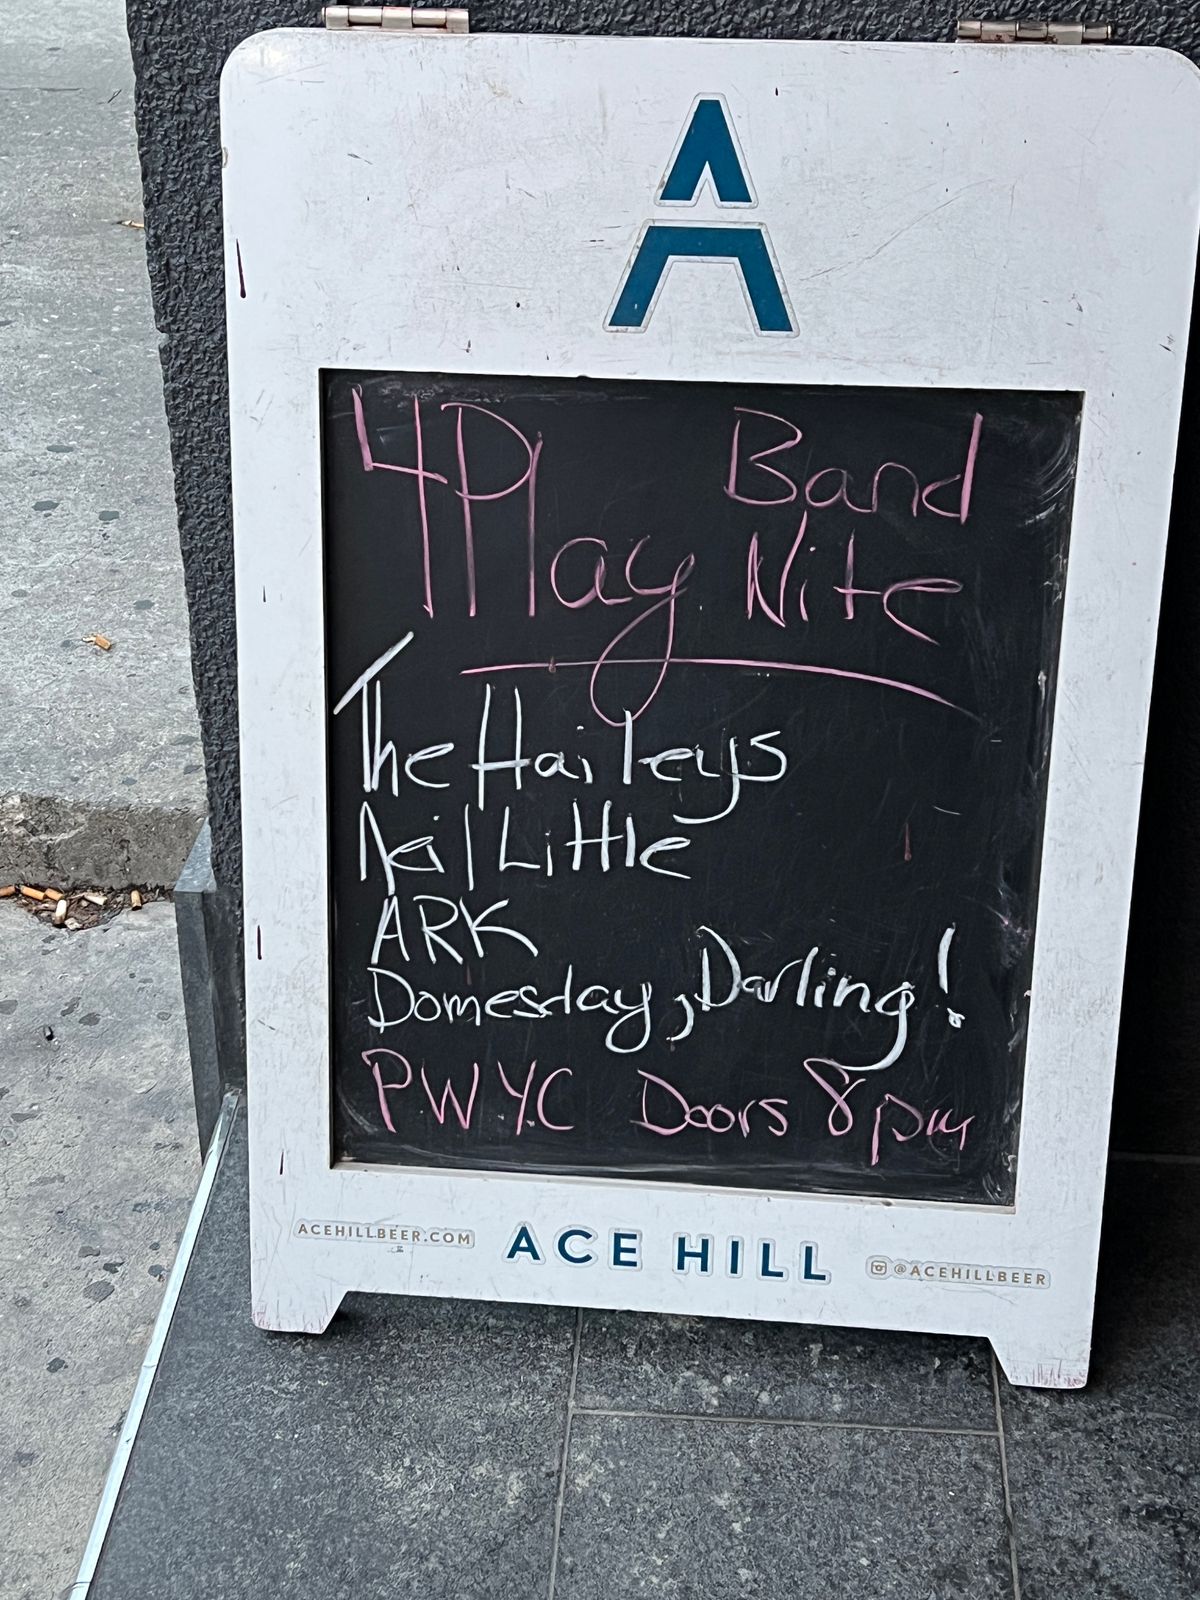 4Play Band
Nite
The Haileys
Neil Little
ARK
Domesday, Darling!
PWYC Doors 8pm
ACEHILLBEER.COM ACE HILL @ACEHILLBEER